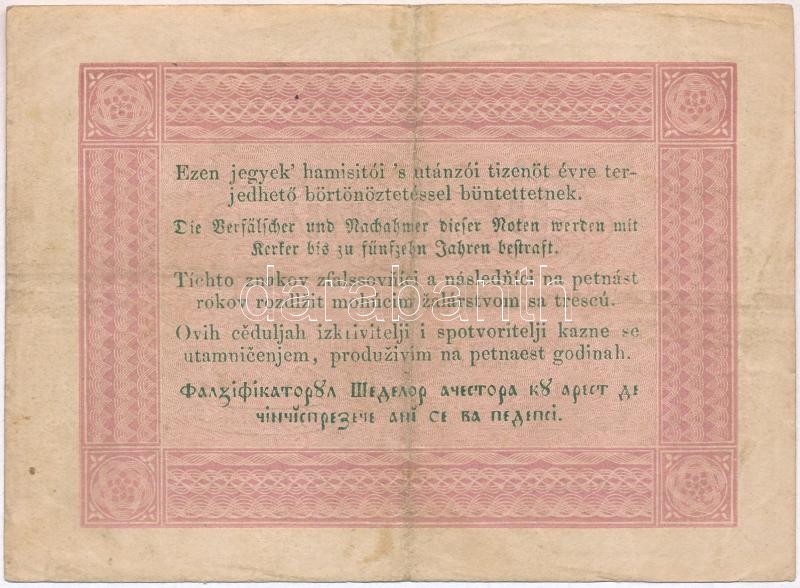 Ezen jegyek' hamisitói 's utánzói tizenöt évre ter-
jedhető börtönöztetéssel büntettetnek.
Die Verfälscher und Nachahmer dieser Noten werden mit
Kerker bis zu fünfzehn Jahren bestraft.
Tíchto znakov zfalssovňíci a následňíci na petnást
rokov rozdĺžit mohúcim žalárstvom sa trescú.
darabanth
Ovih cěduljah izktivitelji i spotvoritelji kazne se
utamničenjem, produživim na petnaest godinah.
Фалꙁіфікаторꙋл Шеделор ачестора кꙋ арест де
чінчіспрезече ані се ва педепсі.